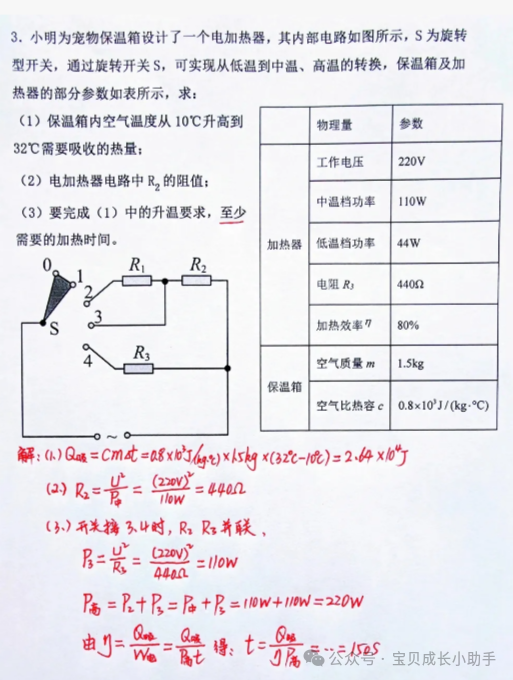 3. 小明为宠物保温箱设计了一个电加热器，其内部电路如图所示，S 为旋转
型开关，通过旋转开关 S，可实现从低温到中温、高温的转换，保温箱及加
热器的部分参数如表所示，求：
（1）保温箱内空气温度从 10℃升高到
32℃需要吸收的热量；
（2）电加热器电路中 R₂ 的阻值；
（3）要完成（1）中的升温要求，至少
需要的加热时间。
物理量 参数
加热器
工作电压 220V
中温档功率 110W
低温档功率 44W
电阻 R₃ 440Ω
加热效率 η 80%
保温箱
空气质量 m 1.5kg
空气比热容 c 0.8×10³J/(kg·℃)
0 1 R₁ R₂
2
S 3
4 R₃
~
解：(1.) Q吸=cmΔt=0.8×10³J/(kg·℃)×1.5kg×(32℃-10℃)=2.64×10⁴J
(2.) R₂=U²/P中=(220V)²/110W=440Ω
(3.) 开关接 3.4时，R₂ R₃ 并联，
P₃=U²/R₃=(220V)²/440Ω=110W
P高=P₂+P₃=P中+P₃=110W+110W=220W
由η=Q吸/W电=Q吸/P高t 得：t=Q吸/ηP高=…=150S
公众号 · 宝贝成长小助手